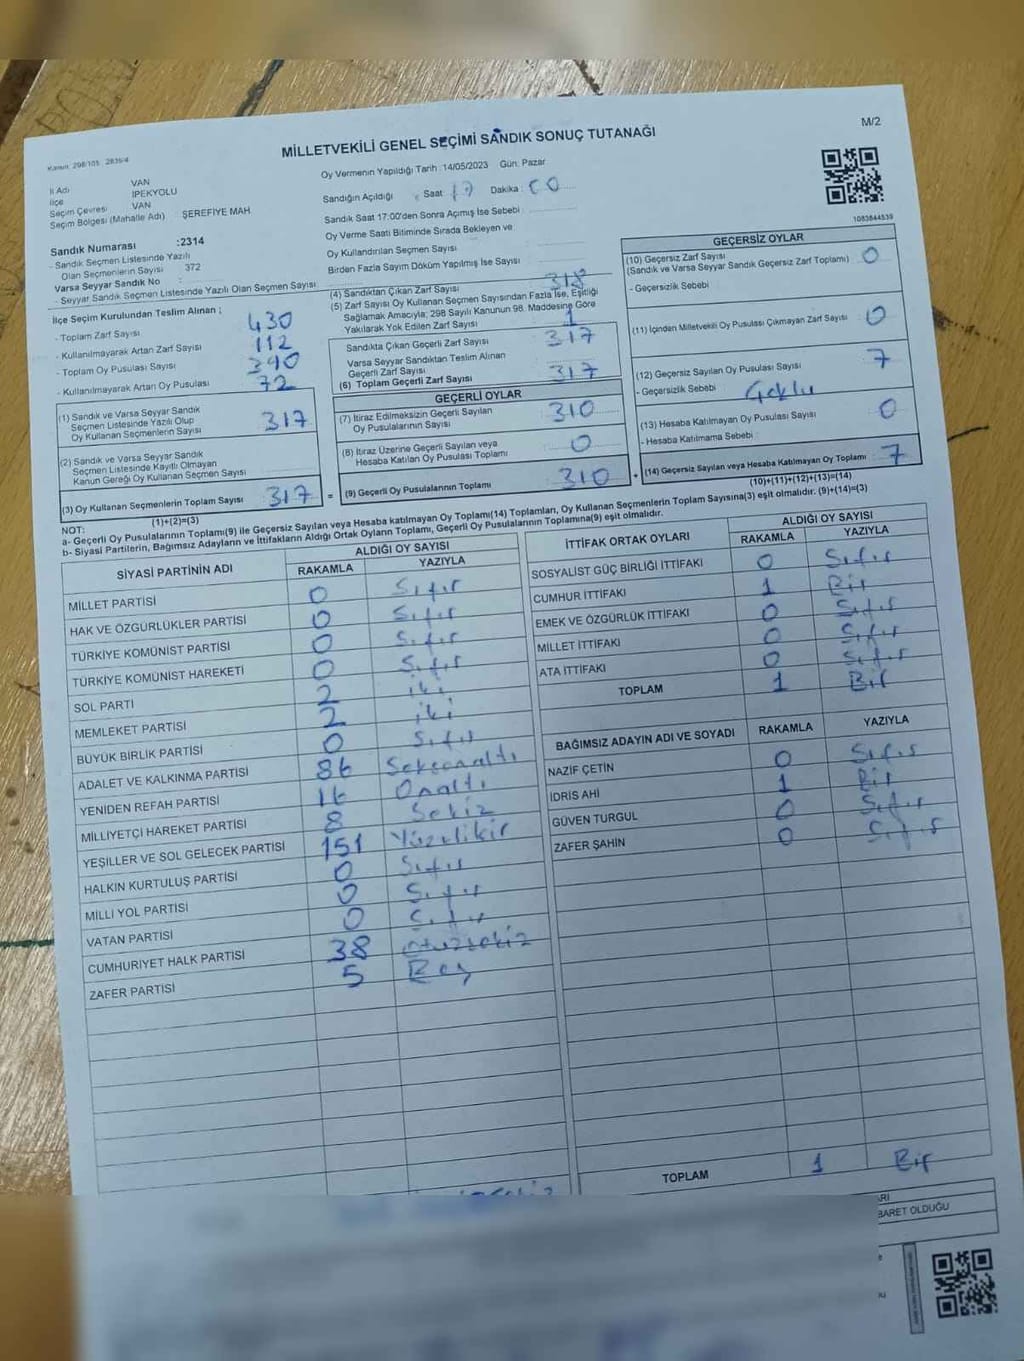 Kanun: 298/105 2839/4
M/2
MİLLETVEKİLİ GENEL SEÇİMİ SANDIK SONUÇ TUTANAĞI
İl Adı VAN
İlçe İPEKYOLU
Seçim Çevresi VAN
Seçim Bölgesi (Mahalle Adı) : ŞEREFİYE MAH
Sandık Numarası :2314
- Sandık Seçmen Listesinde Yazılı
Olan Seçmenlerin Sayısı 372
Varsa Seyyar Sandık No :
- Seyyar Sandık Seçmen Listesinde Yazılı Olan Seçmen Sayısı:
Oy Vermenin Yapıldığı Tarih :14/05/2023 Gün: Pazar
Sandığın Açıldığı : Saat 17 Dakika : 00
Sandık Saat 17:00'den Sonra Açımış İse Sebebi :
Oy Verme Saati Bitiminde Sırada Bekleyen ve
Oy Kullandırılan Seçmen Sayısı :
Birden Fazla Sayım Döküm Yapılmış İse Sayısı :
1083844539
İlçe Seçim Kurulundan Teslim Alınan ;
- Toplam Zarf Sayısı 430
- Kullanılmayarak Artan Zarf Sayısı 112
- Toplam Oy Pusulası Sayısı 390
- Kullanılmayarak Artan Oy Pusulası 72
(1) Sandık ve Varsa Seyyar Sandık
Seçmen Listesinde Yazılı Olup
Oy Kullanan Seçmenlerin Sayısı : 317
(2) Sandık ve Varsa Seyyar Sandık
Seçmen Listesinde Kayıtlı Olmayan
Kanun Gereği Oy Kullanan Seçmen Sayısı :
(3) Oy Kullanan Seçmenlerin Toplam Sayısı : 317
(1)+(2)=(3)
(4) Sandıktan Çıkan Zarf Sayısı 318
(5) Zarf Sayısı Oy Kullanan Seçmen Sayısından Fazla İse, Eşitliği
Sağlamak Amacıyla; 298 Sayılı Kanunun 98. Maddesine Göre
Yakılarak Yok Edilen Zarf Sayısı : 1
Sandıkta Çıkan Geçerli Zarf Sayısı : 317
Varsa Seyyar Sandıktan Teslim Alınan
Geçerli Zarf Sayısı :
(6) Toplam Geçerli Zarf Sayısı : 317
GEÇERLİ OYLAR
(7) İtiraz Edilmeksizin Geçerli Sayılan
Oy Pusulasının Sayısı : 310
(8) İtiraz Üzerine Geçerli Sayılan veya
Hesaba Katılan Oy Pusulası Toplamı : 0
= (9) Geçerli Oy Pusulalarının Toplamı : 310
GEÇERSİZ OYLAR
(10) Geçersiz Zarf Sayısı
(Sandık ve Varsa Seyyar Sandık Geçersiz Zarf Toplamı) : 0
- Geçersizlik Sebebi :
(11) İçinden Milletvekili Oy Pusulası Çıkmayan Zarf Sayısı : 0
(12) Geçersiz Sayılan Oy Pusulası Sayısı : 7
- Geçersizlik Sebebi :
(13) Hesaba Katılmayan Oy Pusulası Sayısı : 0
- Hesaba Katılmama Sebebi :
+ (14) Geçersiz Sayılan veya Hesaba Katılmayan Oy Toplamı : 7
(10)+(11)+(12)+(13)=(14)
NOT:
a- Geçerli Oy Pusulalarının Toplamı(9) ile Geçersiz Sayılan veya Hesaba katılmayan Oy Toplamı(14 Toplamları, Oy Kullanan Seçmenlerin Toplam Sayısına(3) eşit olmalıdır. (9)+(14)=(3)
b- Siyasi Partilerin, Bağımsız Adayların ve İttifakların Aldığı Ortak Oyların Toplamı, Geçerli Oy Pusulalarının Toplamına(9) eşit olmalıdır.
SİYASİ PARTİNİN ADI ALDIĞI OY SAYISI
RAKAMLA YAZIYLA
MİLLET PARTİSİ 0 Sıfır
HAK VE ÖZGÜRLÜKLER PARTİSİ 0 Sıfır
TÜRKİYE KOMÜNİST PARTİSİ 0 Sıfır
TÜRKİYE KOMÜNİST HAREKETİ 0 Sıfır
SOL PARTİ 2 iki
MEMLEKET PARTİSİ 2 iki
BÜYÜK BİRLİK PARTİSİ 0 Sıfır
ADALET VE KALKINMA PARTİSİ 86 Seksenaltı
YENİDEN REFAH PARTİSİ 16 Onaltı
MİLLİYETÇİ HAREKET PARTİSİ 8 Sekiz
YEŞİLLER VE SOL GELECEK PARTİSİ 151 Yüzellibir
HALKIN KURTULUŞ PARTİSİ 0 Sıfır
MİLLİ YOL PARTİSİ 0 Sıfır
VATAN PARTİSİ 0 Sıfır
CUMHURİYET HALK PARTİSİ 38 otuzsekiz
ZAFER PARTİSİ 5 Beş
İTTİFAK ORTAK OYLARI ALDIĞI OY SAYISI
RAKAMLA YAZIYLA
SOSYALİST GÜÇ BİRLİĞİ İTTİFAKI 0 Sıfır
CUMHUR İTTİFAKI 1 Bir
EMEK VE ÖZGÜRLÜK İTTİFAKI 0 Sıfır
MİLLET İTTİFAKI 0 Sıfır
ATA İTTİFAKI 0 Sıfır
TOPLAM 1 Bir
BAĞIMSIZ ADAYIN ADI VE SOYADI RAKAMLA YAZIYLA
NAZİF ÇETİN 0 Sıfır
İDRİS AHİ 1 Bir
GÜVEN TURGUL 0 Sıfır
ZAFER ŞAHİN 0 Sıfır
TOPLAM 1 Bir
BARET OLDUĞU